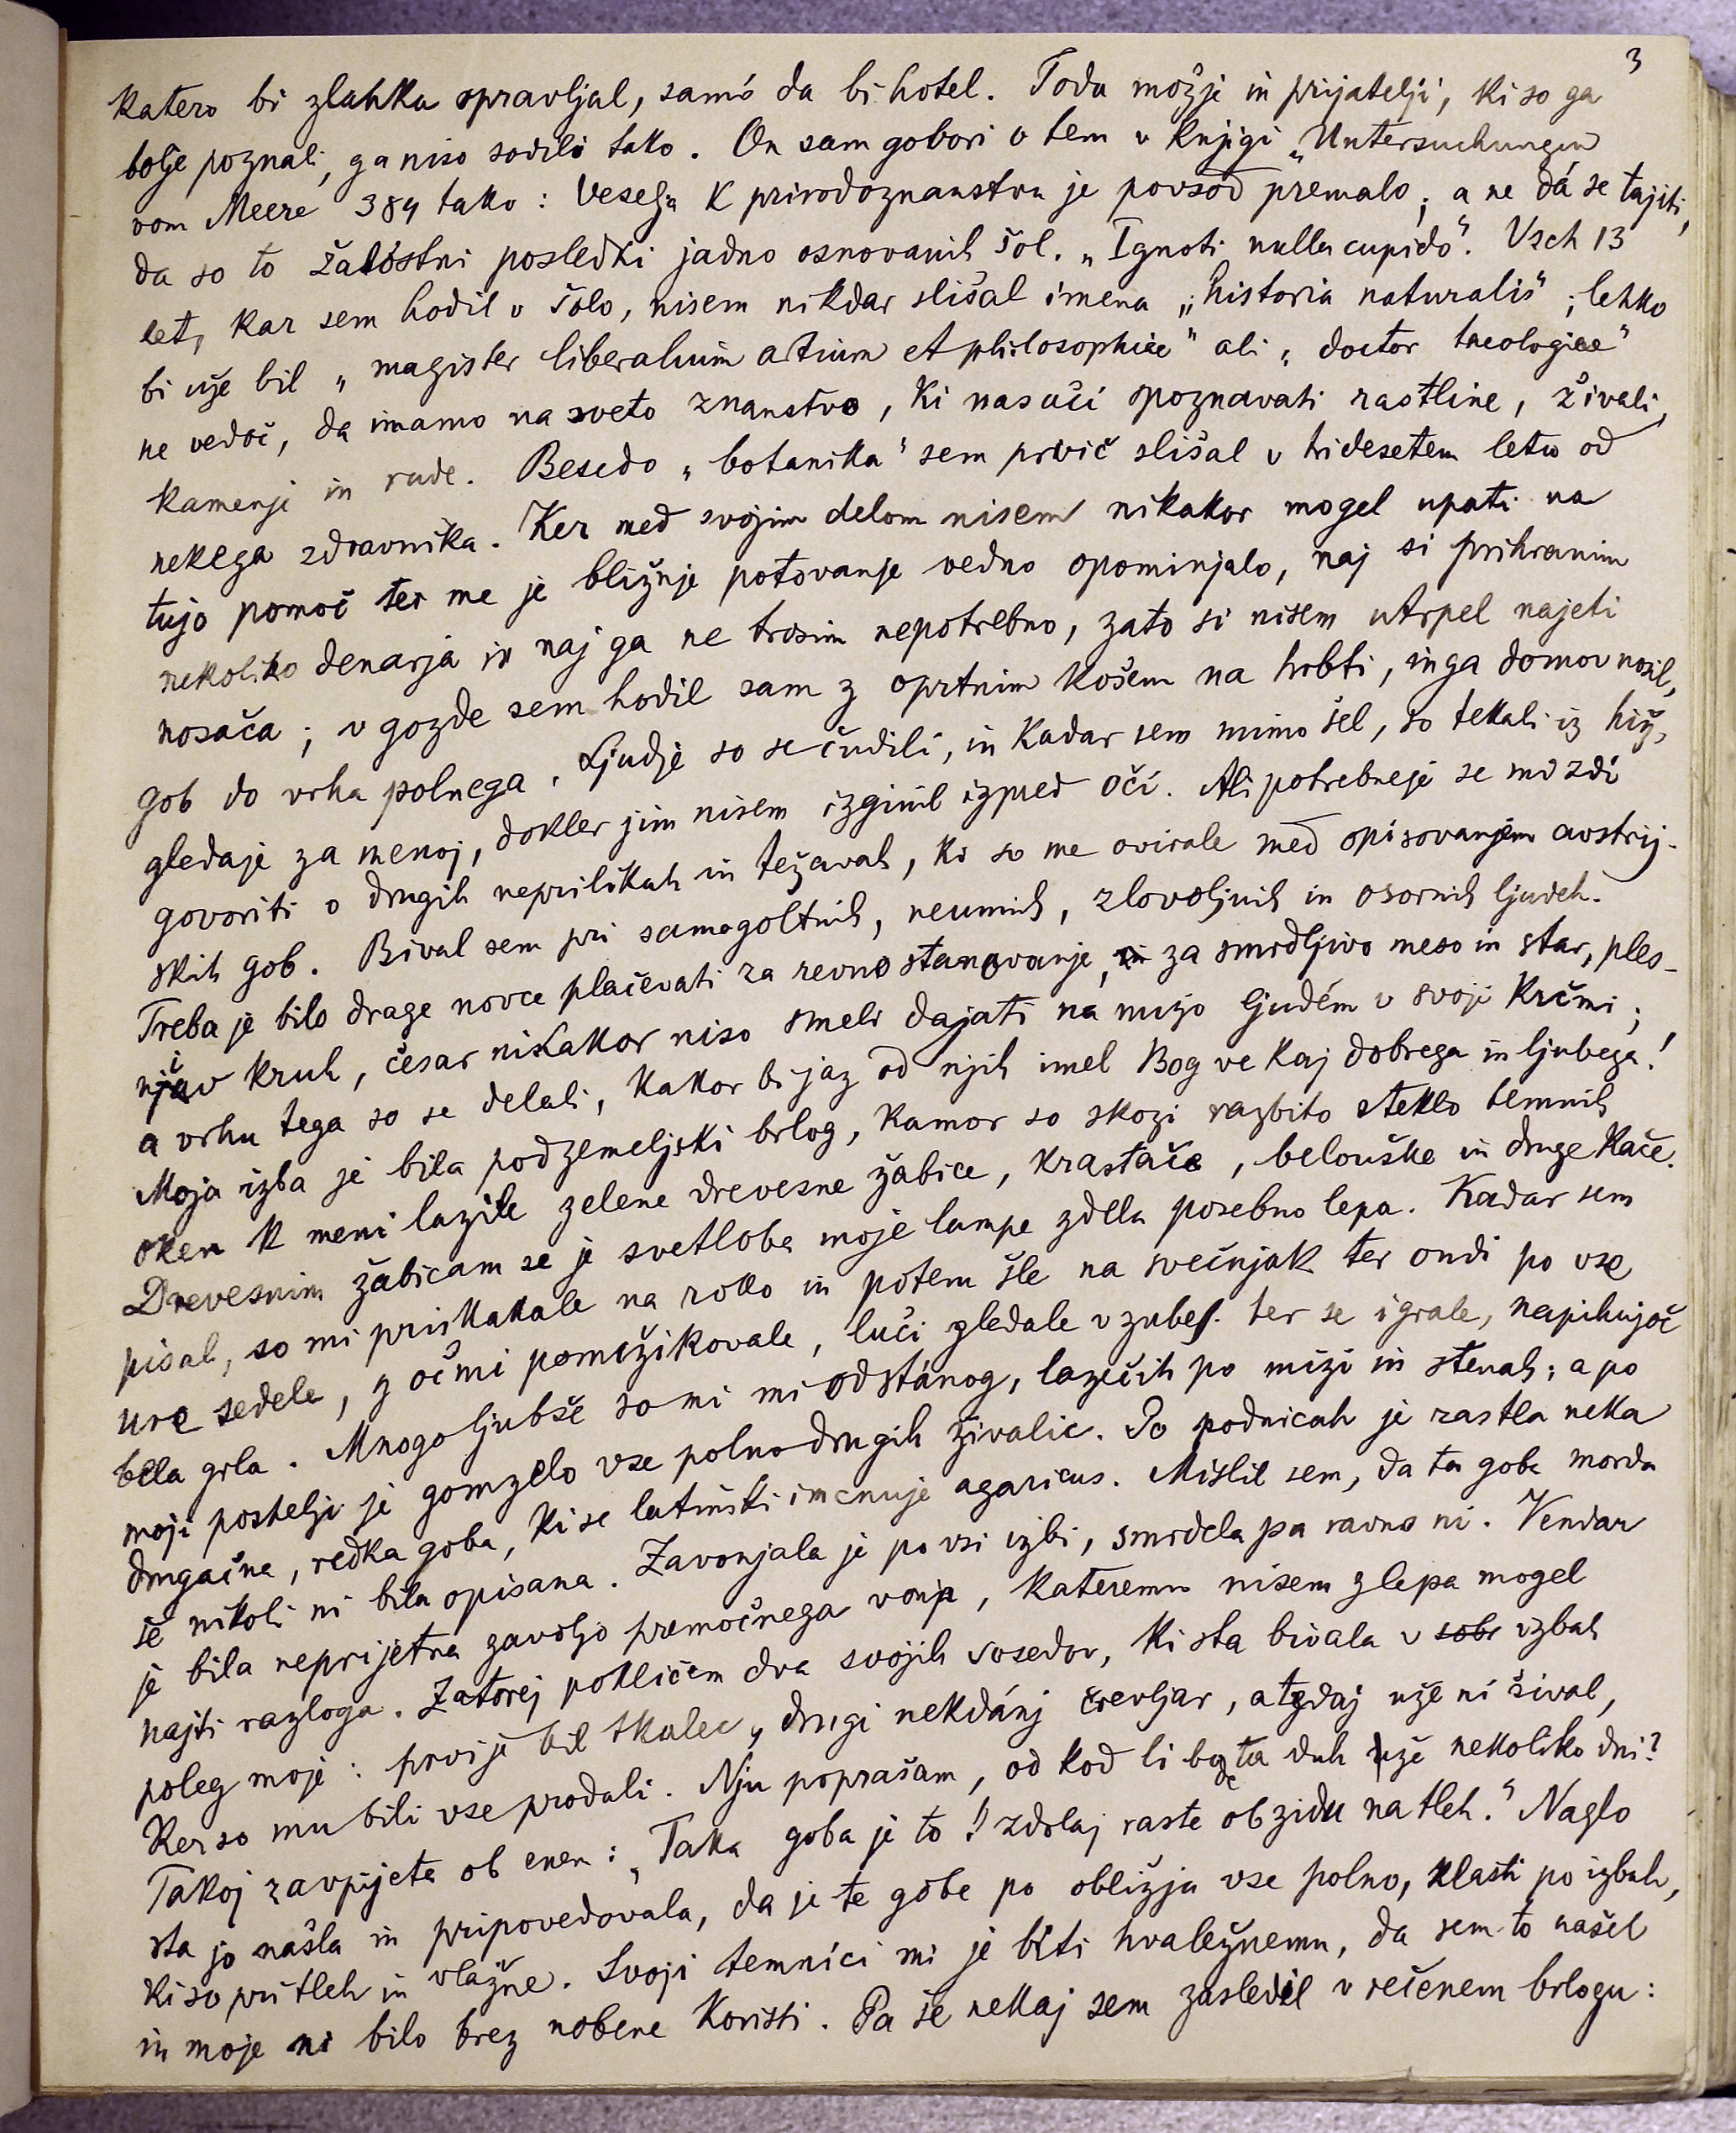 3
katero bi zlahka opravljal, samó da bi hotel. Toda možje in prijatelji, ki so ga
bolje poznali, ga niso sodili tako. On sam gobori o tem v knjigi „Untersuchungen
vom Meere 384 tako: Veselja k prirodoznanstvu je povsod premalo; a ne dá se tajiti,
da so to žalóstni posledki jadno osnovanih šol. „Ignoti nulla cupido“. Vseh 13
let, kar sem hodil v šolo, nisem nikdar slišal imena „historia naturalis“; lehko
bi uže bil „magister liberalium artium et philosophiae“ ali „doctor theologiae“
ne vedoč, da imamo na sveto znanstvo, ki nas uči spoznavati rastline, živali,
kamenje in rude. Besedo „botanika“ sem prvič slišal v tridesetem letu od
nekega zdravnika. Ker med svojim delom nisem nikakor mogel upati na
tujo pomoč ter me je bližnje potovanje vedno opominjalo, naj si prihranim
nekoliko denarja in naj ga ne trosim nepotrebno, zato si nisem utrpel najeti
nosača; v gozde sem hodil sam z oprtnim košem na hrbti, in ga domov nosil,
gob do vrha polnega. Ljudje so se čudili, in kadar sem mimo šel, so tekali iz hiž,
gledaje za menoj, dokler jim nisem izginil izpred oči. Ali potrebneje se mi zdi
govoriti o drugih neprilikah in težavah, ki so me ovirale med opisovanjem avstrij-
skih gob. Bival sem pri samogoltnih, neumnih, zlovoljnih in osornih ljudeh.
Treba je bilo drage novce plačevati za revno stanovanje, za smrdljivo meso in star, ples-
njiv kruh, česar nikakor niso smeli dajati na mizo ljudém v svoji krčmi;
a vrhu tega so se delali, kakor bi jaz od njih imel Bog ve kaj dobrega in ljubega!
Moja izba je bila podzemeljski brlog, kamor so skozi razbito steklo temnih
oken k meni lazile zelene drevesne žabice, krastače, belouške in druge kače.
Drevesnim žabicam se je svetloba moje lampe zdela posebno lepa. Kadar sem
pisal, so mi priskakale na roko in potem šle na svečnjak ter ondi po vse
ure sedele, z očmi pomežikovale, luči gledale v zube ter se igrale, napihujoč
bela grla. Mnogo ljubše so mi mi od stánog, lazečih po mizi in stenah; a po
moji postelji je gomzelo vse polno drugih živalic. Po podnicah je rastla neka
drugačna, redka goba, ki se latinski imenuje agaricus. Mislil sem, da ta goba morda
še nikoli ni bila opisana. Zavonjala je po vsi izbi, smrdela pa ravno ni. Vendar
je bila neprijetna zavoljo premočnega vonja, kateremu nisem zlepa mogel
najti razloga. Zatorej pokličem dva svojih sosedov, ki sta bivala v sobi izbah
poleg moje: prvi je bil tkalec, drugi nekdánj črevljar, a tedaj uže ni šival,
Ker so mu bili vse prodali. Nju poprašam, od kod li bode ta duh uže nekoliko dni?
Takoj zavpijeta ob enem: „Taka goba je to! zdolaj raste ob zidu na tleh.“ Naglo
sta jo našla in pripovedovala, da je te gobe po obližju vse polno, zlasti po izbah,
ki so pri tleh in vlažne. Svoji temnici mi je biti hvaležnemu, da sem to našel
in moje ni bilo brez nobene koristi. Pa še nekaj sem zasledil v rečenem brlogu: